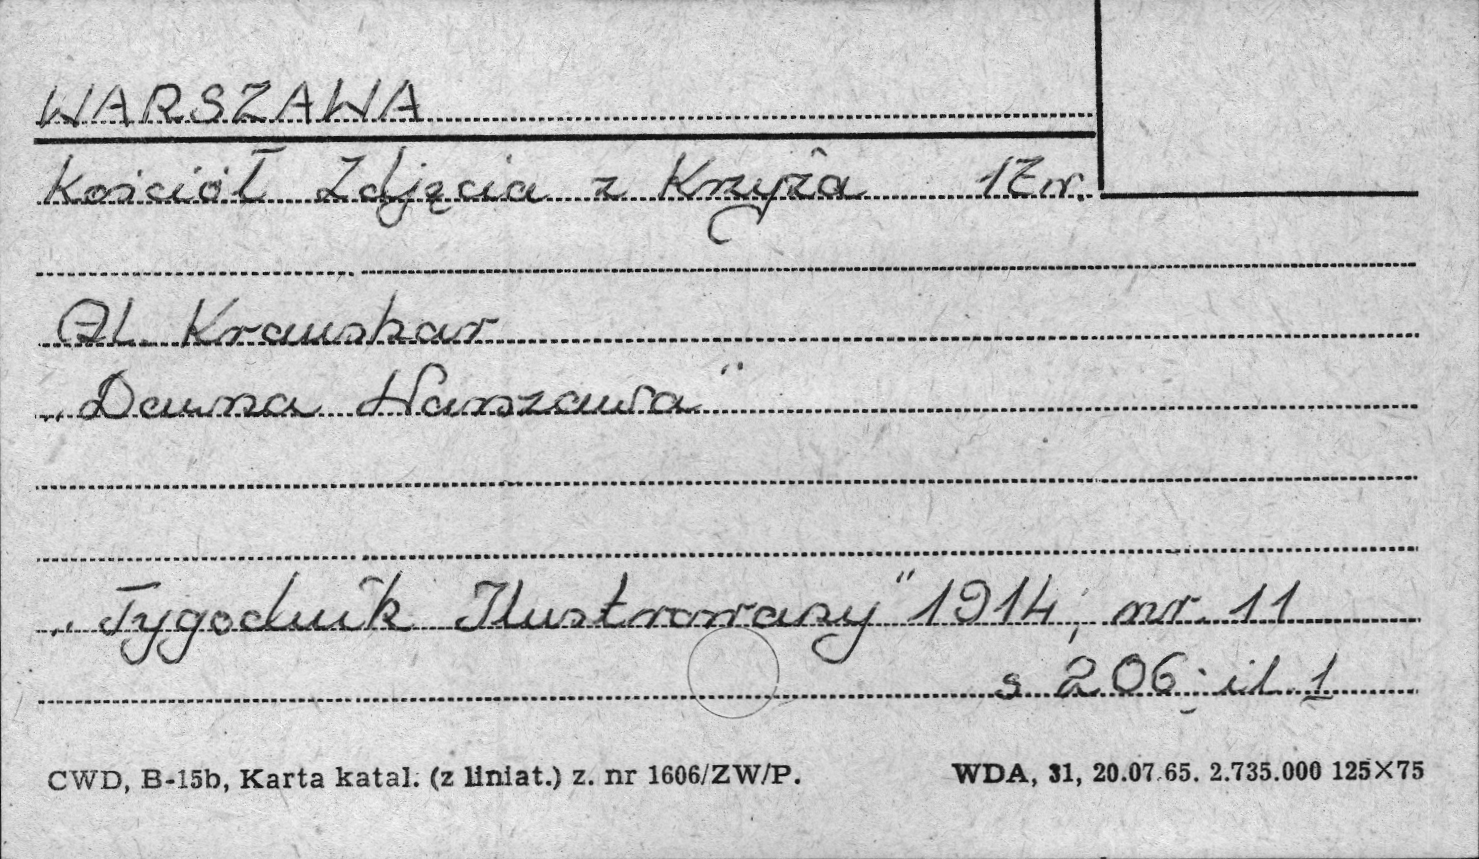 WARSZAWA
Kościół Zdjęcia z Krzyża 17 r.
Al. Kraushar
„Dawna Warszawa"
„Tygodnik Ilustrowany" 1914, nr. 11
s 206; il. 1
CWD, B-15b, Karta katal. (z liniat.) z. nr 1606/ZW/P.
WDA, 31, 20.07.65. 2.735.000 125×75